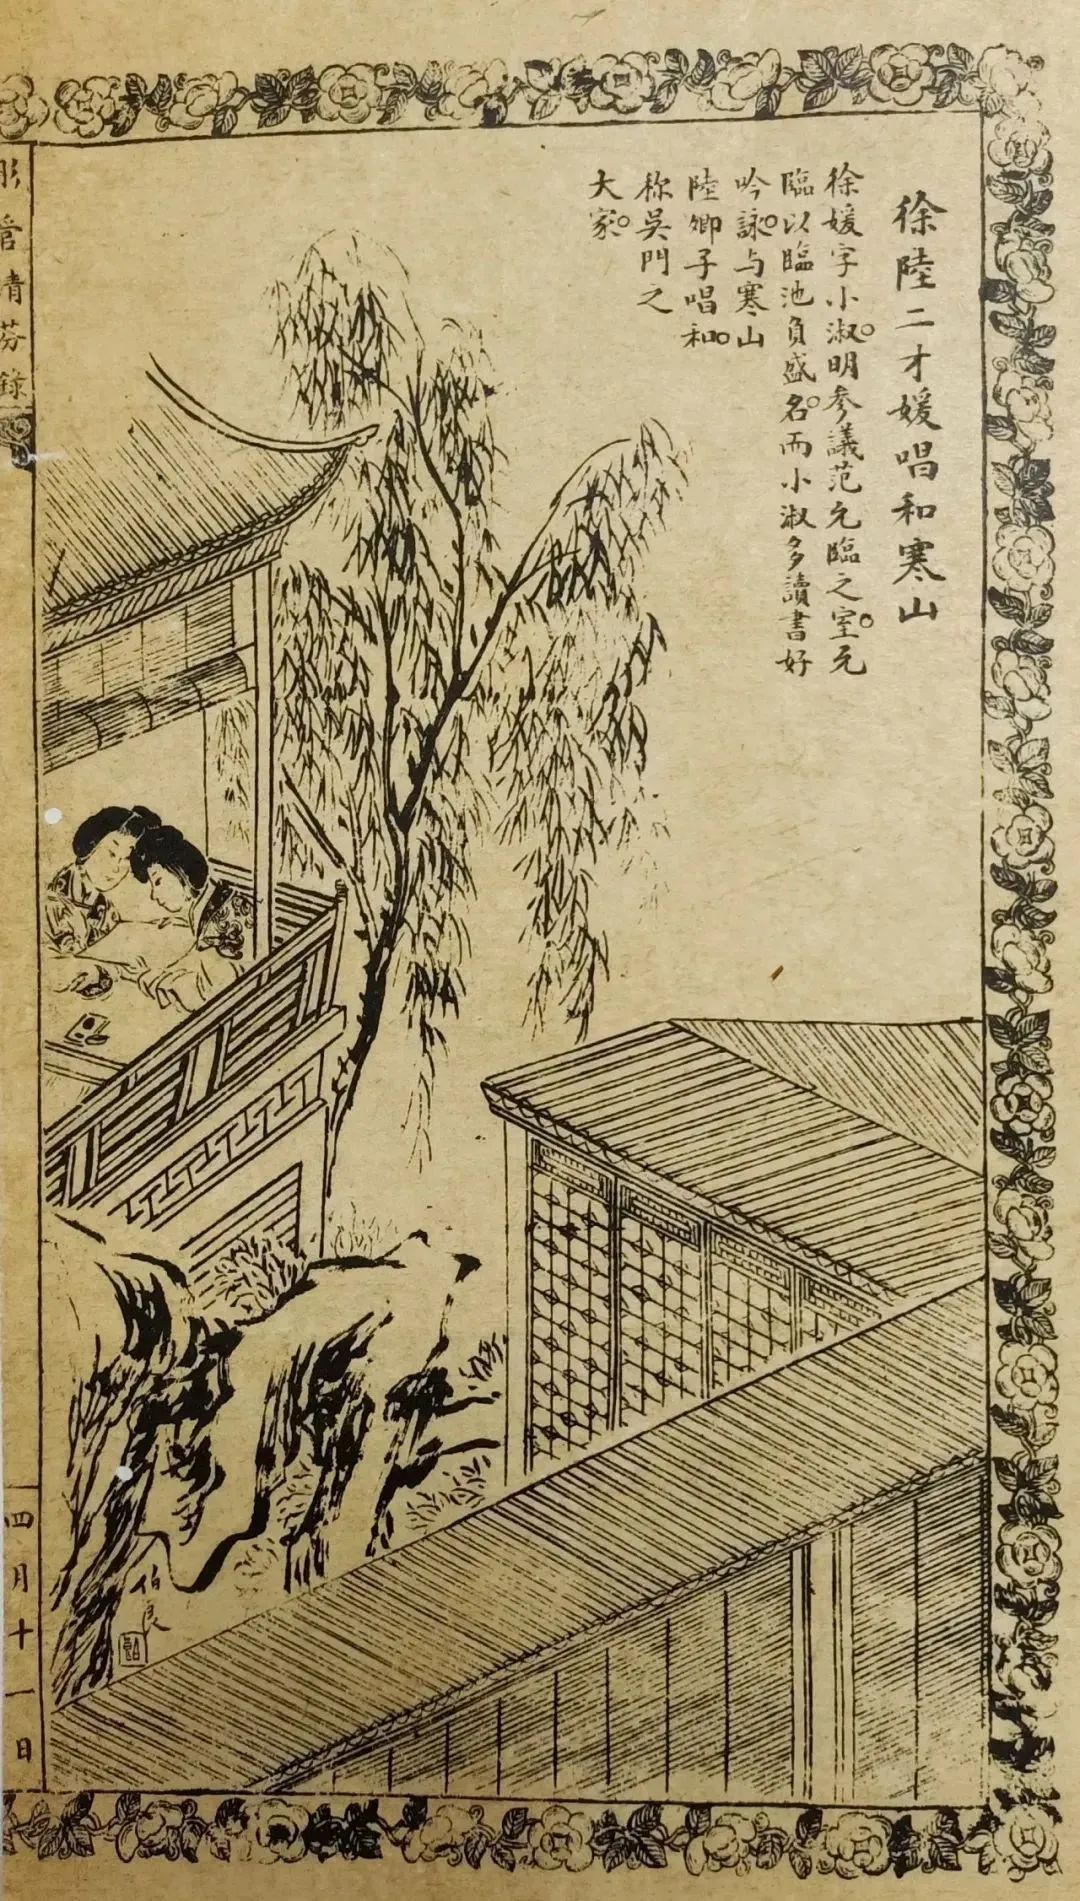 徐陸二才媛唱和寒山
徐媛字小淑。明參議范允臨之室。允
臨以臨池負盛名。而小淑多讀書好
吟詠。与寒山
陸卿子唱和。
称吳門之
大家。
彤管清芬錄
四月十一日
伯良